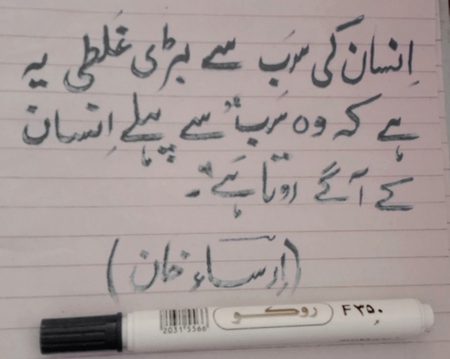 اِنسان کی سَب سے بڑی غَلطی یہ
ہے کہ وہ رَب سے پہلے اِنسان
کے آگے روتا ہَے۔
(اِرساء خان)
روکو F ۳۵۰
2031 5566